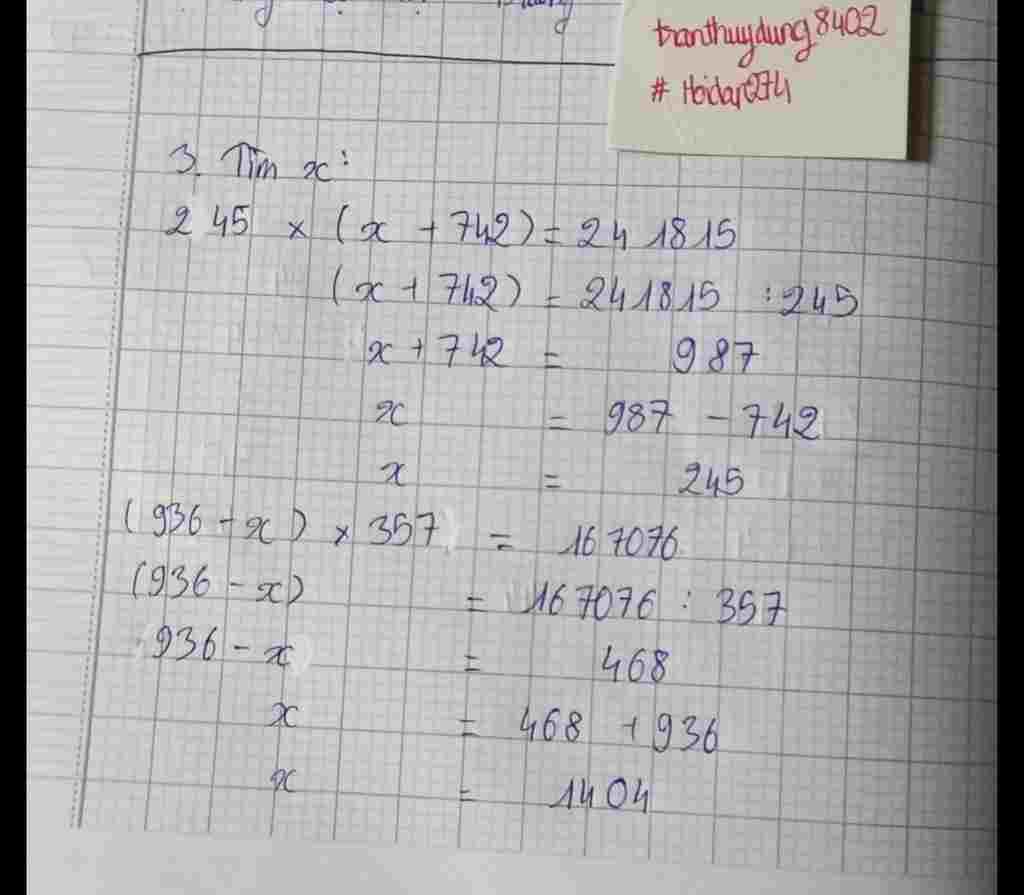 tranthuydung8402
# Hoidap274
3. Tìm x:
245 × (x + 742) = 241815
(x + 742) = 241815 : 245
x + 742 = 987
x = 987 - 742
x = 245
(936 - x) × 357 = 167076
(936 - x) = 167076 : 357
936 - x = 468
x = 468 + 936
x = 1404